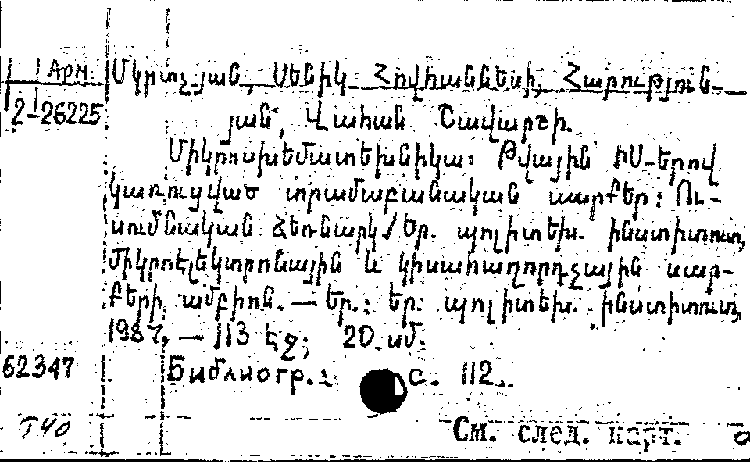 Арм. Մկրտչյան, Սենիկ Հովհաննեսի, Հարություն-
2-26225 յան, Վահան Շավարշի.
Միկրոսխեմատեխնիկա: Թվային ԻՍ-երով
կառուցված տրամաբանական սարքեր: Ու-
սումնական ձեռնարկ/Եր. պոլիտեխ. ինստիտուտ,
Միկրոէլեկտրոնային և կիսահաղորդչային սար-
քերի ամբիոն. — Եր.: Եր. պոլիտեխ. ինստիտուտ,
1987. — 113 էջ; 20 սմ.
62347 Библиогр.: с. 112.
T40 См. след. карт.